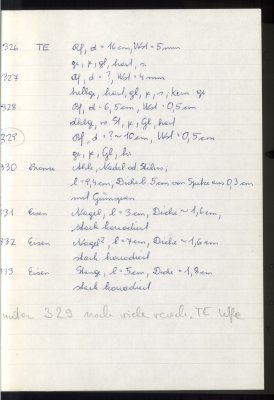 326 TE Rf, d = 16 cm, Wst = 5 mm
gr, gl, hart, r.
327 Rf, d = ?, Wst = 4 mm
hellgr, hart, gl, r, Kern gr
328 Rf, d = 6,5 cm, Wst = 0,5 cm
dklgr, St, Gl, hart
329 Rf, d = ? ~ 10 cm, Wst = 0,5 cm
gr, Gl, hr
330 Bronze Ahle, Nadel od. Stilus,
l = 9,4 cm, Dicke 5 cm von Spitze aus 0,3 cm
mit
331 Eisen Nagel, l = 3 cm, Dicke ~ 1,6 cm,
stark korrodiert
332 Eisen Nagel?, l = 7 cm, Dicke ~ 1,6 cm
stark korrodiert
333 Eisen Stange, l = 5 cm, Dicke = 1,8 cm
stark korrodiert
unter 329 noch viele versch. TE